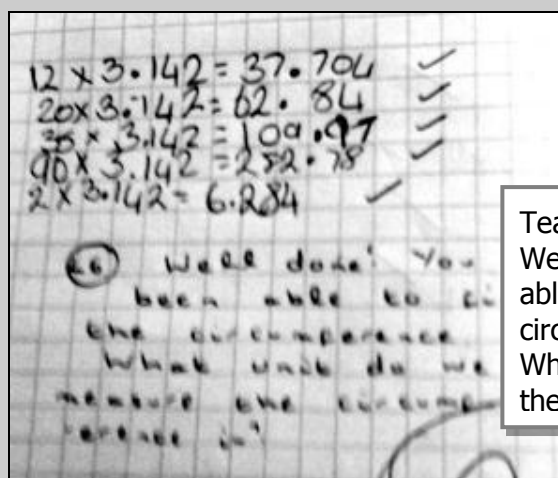 12 x 3.142 = 37.704
20 x 3.142 = 62.84
35 x 3.142 = 109.97
90 x 3.142 = 282.78
2 x 3.142 = 6.284
L6 Well done! You
been able to
the circumference.
What unit do we
measure the circum
-erence in?
Tea
We
abl
circ
Wh
the